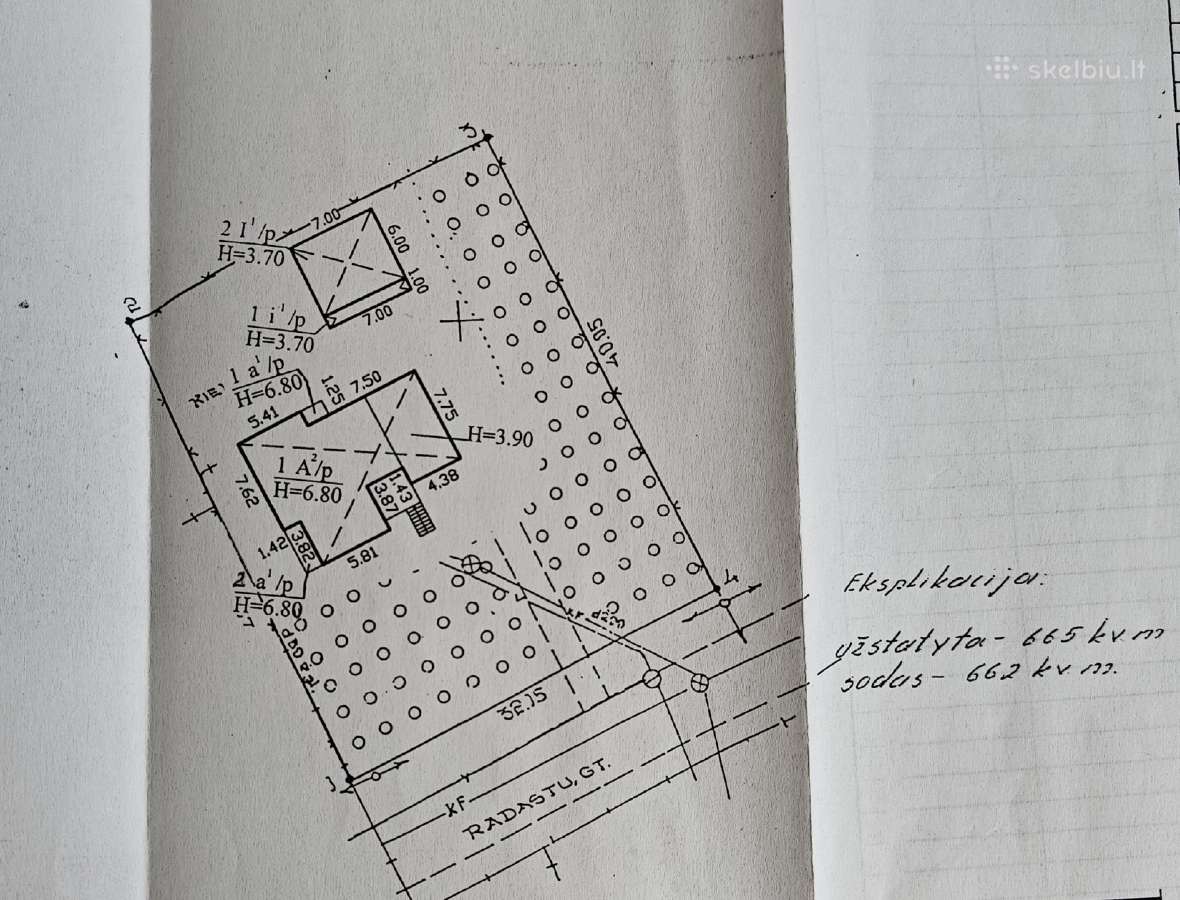 skelbiu.lt
2 I¹/p
H=3.70
7.00
6.00
1.00
7.00
1 i¹/p
H=3.70
40.05
1 a¹/p
H=6.80
1.25
7.50
5.41
7.75
H=3.90
1 A²/p
H=6.80
7.62
1.43
3.87
4.38
1.42
3.82
5.81
2 a¹/p
H=6.80
4
Eksplikacija:
užstatyta - 665 kv m
sodas - 662 kv m.
32.15
1
KF
RADASTU, GT.